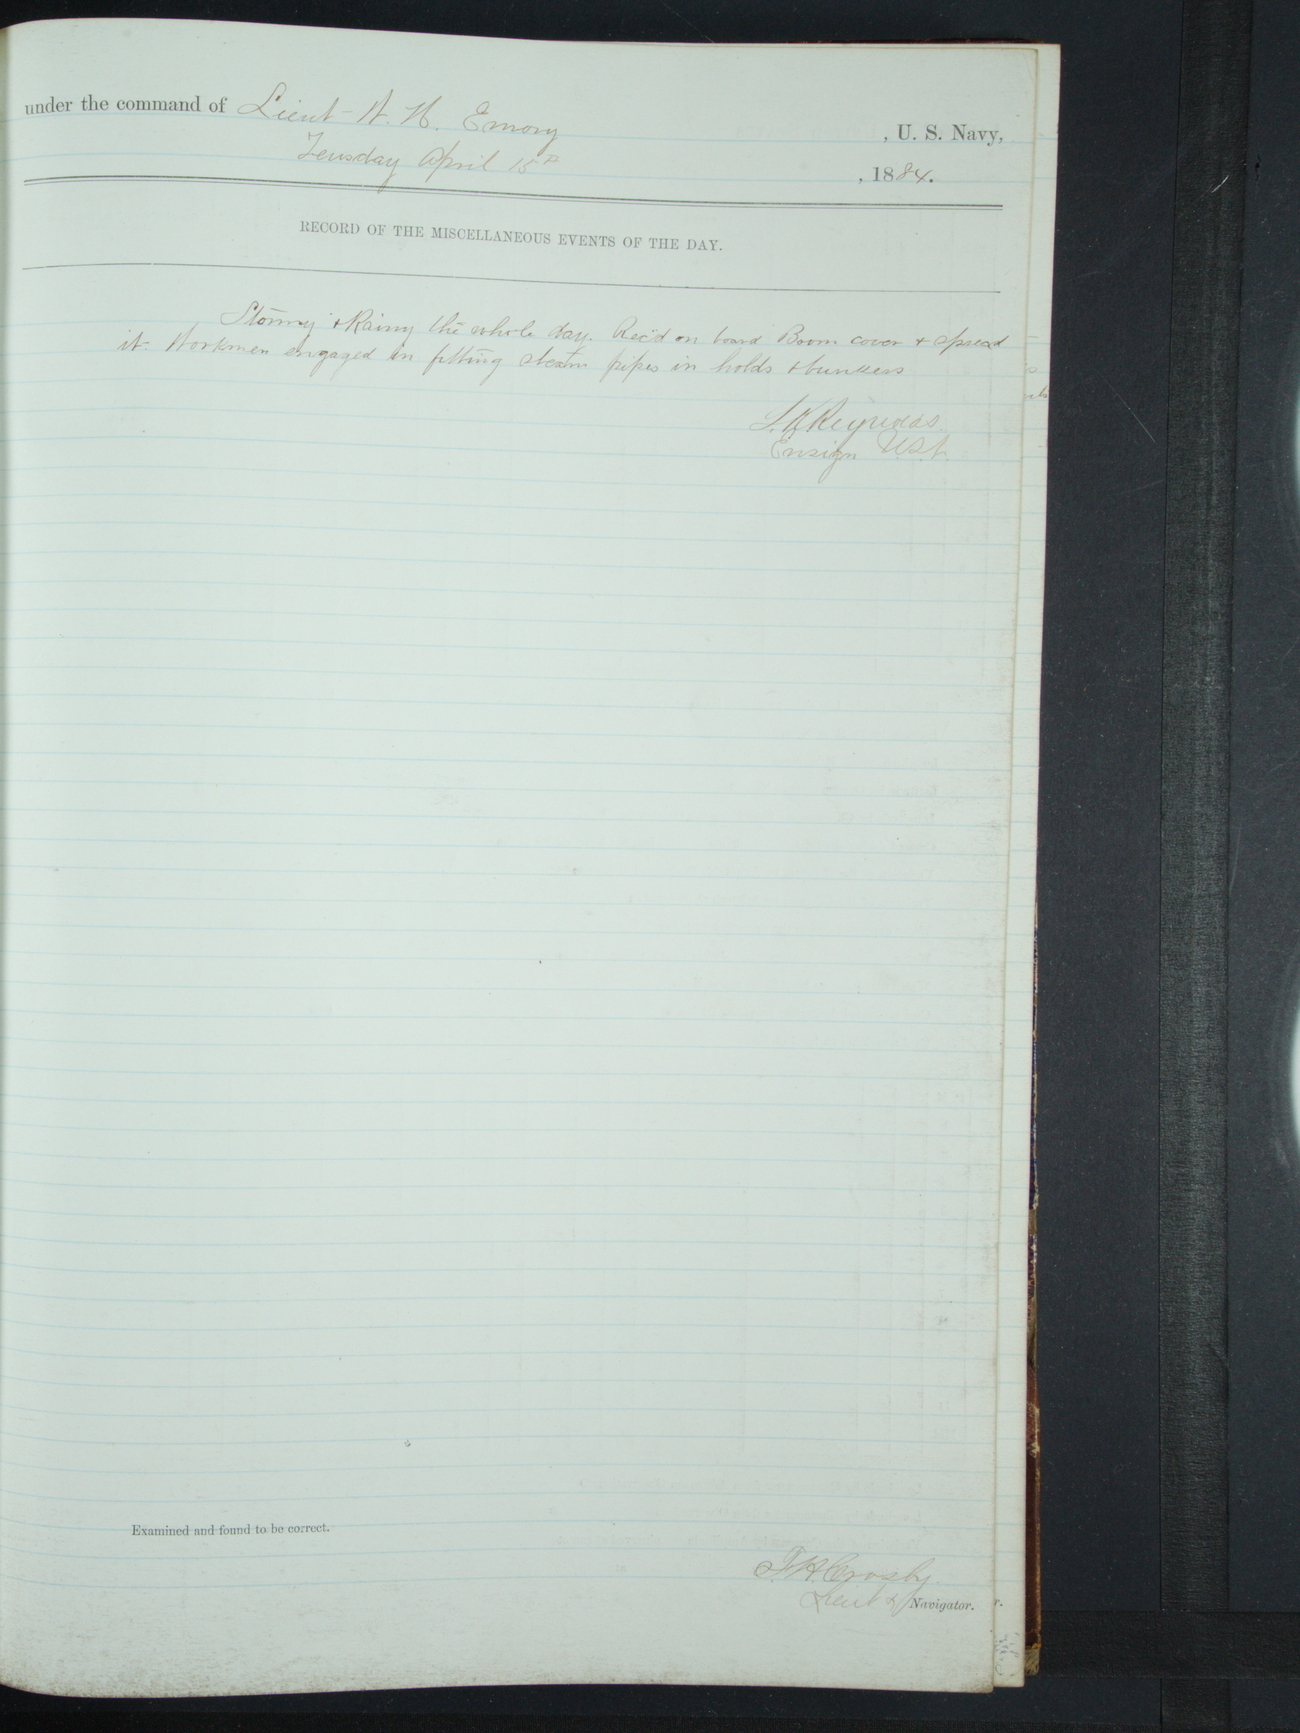 under the command of Lieut W. H. Emory, U. S. Navy,
Teusday April 15th, 1884.
RECORD OF THE MISCELLANEOUS EVENTS OF THE DAY.
Stormy & Rainy the whole day. Rec'd on board Boom cover & spread
it. Workmen engaged in fitting steam pipes in holds & bunkers
L. K. Reynolds
Ensign U.S.N.
Examined and found to be correct.
F. H. Crosby
Lieut & Navigator.